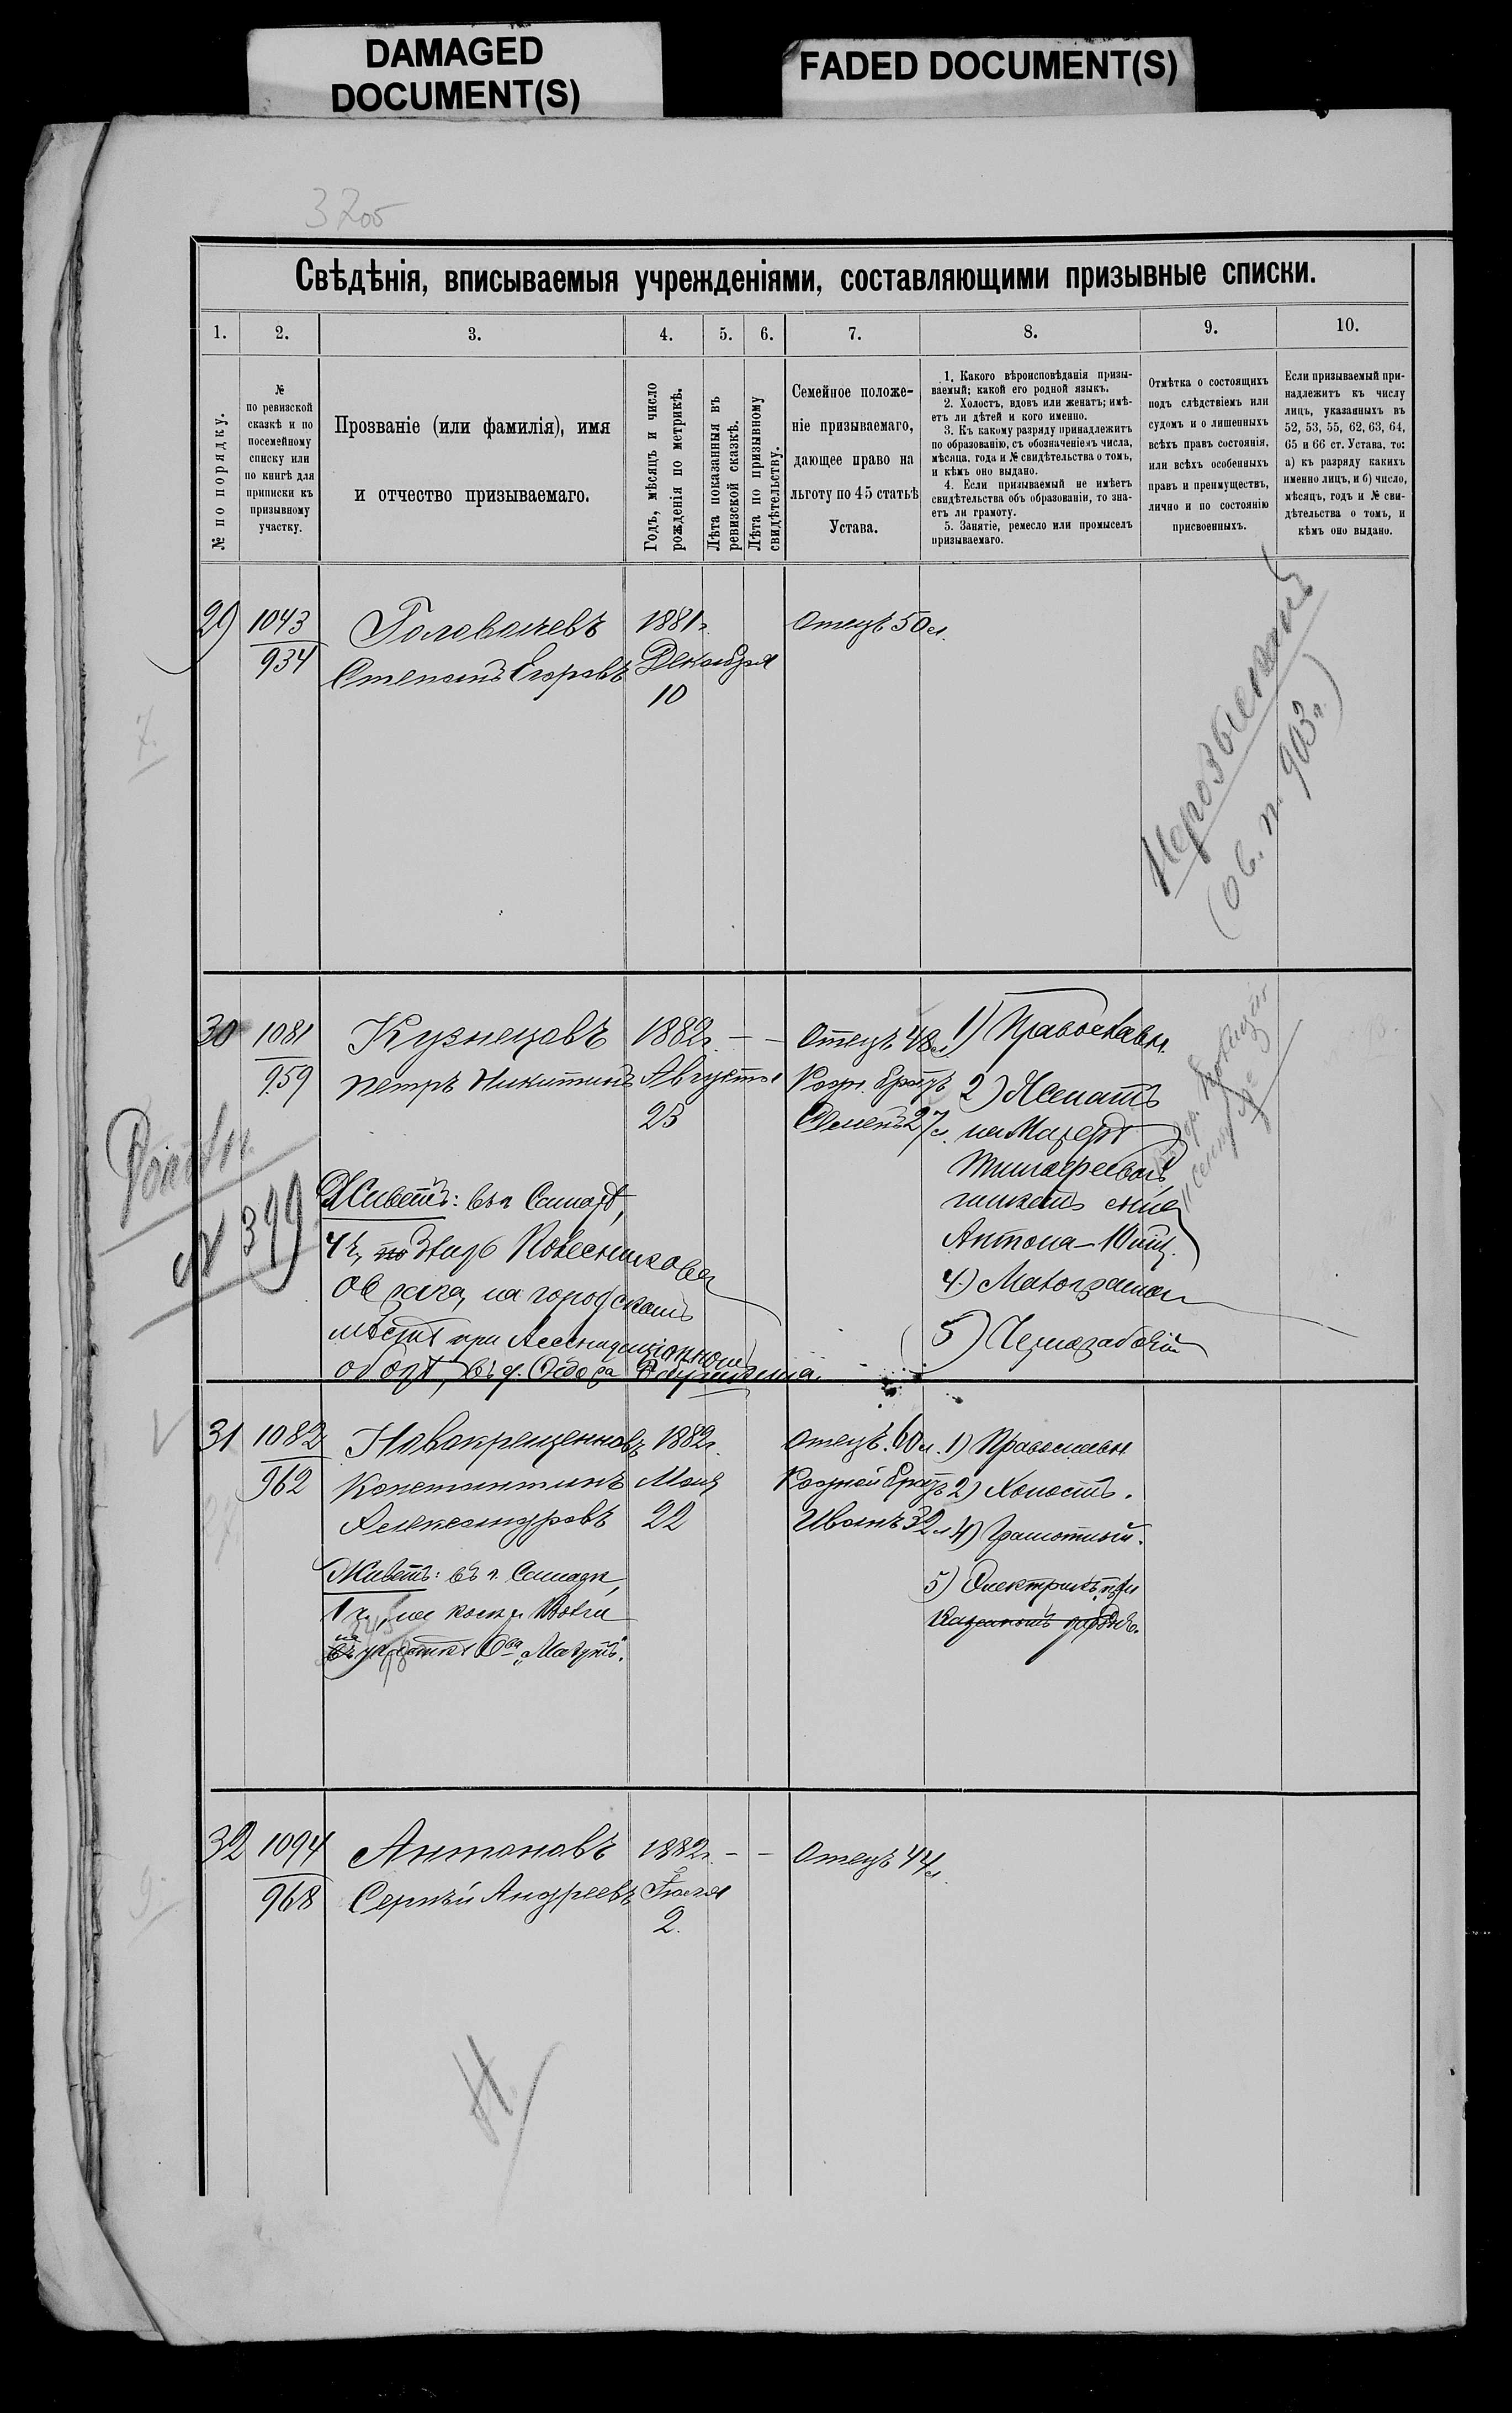 DAMAGED
DOCUMENT(S)
FADED DOCUMENT(S)
Свѣдѣнія, вписываемыя учрежденіями, составляющими призывные списки.
1.
2.
3.
4.
5.
6.
7.
8.
9.
10.
№ по порядку.
№
по ревизской
сказкѣ и по
посемейному
списку или
по книгѣ для
приписки къ
призывному
участку.
Прозваніе (или фамилія), имя
и отчество призываемаго.
Годъ, мѣсяцъ и число
рожденія по метрикѣ.
Лѣта показанныя въ
ревизской сказкѣ.
Лѣта по призывному
свидѣтельству.
Семейное положе-
ніе призываемаго,
дающее право на
льготу по 45 статьѣ
Устава.
1. Какого вѣроисповѣданія призы-
ваемый; какой его родной языкъ.
2. Холостъ, вдовъ или женатъ; имѣ-
етъ ли дѣтей и кого именно.
3. Къ какому разряду принадлежитъ
по образованію, съ обозначеніемъ числа,
мѣсяца, года и № свидѣтельства о томъ,
и кѣмъ оно выдано.
4. Если призываемый не имѣетъ
свидѣтельства объ образованіи, то зна-
етъ ли грамоту.
5. Занятіе, ремесло или промыселъ
призываемаго.
Отмѣтка о состоящихъ
подъ слѣдствіемъ или
судомъ и о лишенныхъ
всѣхъ правъ состоянія,
или всѣхъ особенныхъ
правъ и преимуществъ,
лично и по состоянію
присвоенныхъ.
Если призываемый при-
надлежитъ къ числу
лицъ, указанныхъ въ
52, 53, 55, 62, 63, 64,
65 и 66 ст. Устава, то:
а) къ разряду какихъ
именно лицъ, и б) число,
мѣсяцъ, годъ и № сви-
дѣтельства о томъ, и
кѣмъ оно выдано.
29
1043
934
Головачевъ
Степанъ Егоровъ
1881г.
Декабря
10
Отецъ 50 л.
30
1081
959
Кузнецовъ
Петръ Никитинъ
1882г.
Августа
23
Отецъ 48 л.
Родн. братъ
Семенъ 27 л.
1) Православн.
2) Женатъ
имѣетъ сына
Антона
4) Малограмот
5) Чернорабочій
Живетъ: въ г. Самарѣ,
оврага, на городскомъ
мѣстѣ при Ассенизаціонномъ
обозѣ, въ д. Ѳедора
№ 399
31
1082
962
Новокрещенновъ
Константинъ
Александровъ
1882г.
Мая
22
Отецъ 60 л.
Родной братъ
Иванъ 32 л.
1) Православн
2) Холостъ.
4) Грамотный.
5) Электрикъ при
Живетъ: въ г. Самарѣ,
1 ч., на косѣ р. Волги
32
1094
968
Антоновъ
Сергѣй Андреевъ
1882г.
Іюля
2.
Отецъ 44 л.